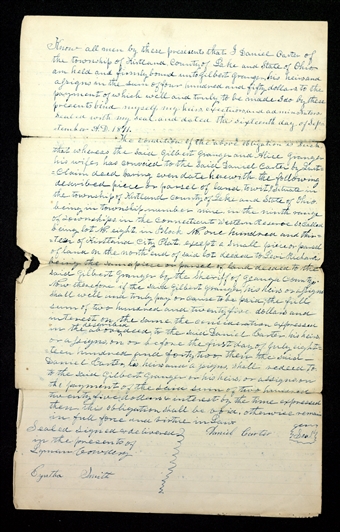 Know all men by these presents that I Daniel Carter of
the township of Kirtland County of Lake and State of Ohio
am held and firmly bound unto Gilbert Granger, his heirs and
assigns in the sum of four hundred and fifty dollars to the
payment of which well and truly to be made I do by these
present bind myself my heirs executors and administrators
Sealed with my seal and dated the sixteenth day of Sep-
tember A.D. 1841.
The condition of the above obligation is such
that whereas the said Gilbert Granger and Alice Granger
his wife has convied to the said Daniel Carter by Quit
Claim deed baring even date herewith the following
described piece or parcel of land towit: Situate in
the township of Kirtland County of Lake and State of Ohio
being in township number nine in the ninth range
of townships in the Connecticut Western Reserve &
being lot No eight in Block No one hundred and
of Kirtland City Plat except a small piece or parcel
of land on the north end of said lot deeded to Levi Richards
being the same piece or parcel of land deeded to the
said Gilbert Granger by the Sheriff of Geauga County.
Now therefore if the said Gilbert Granger, his heirs or assigns
shall well and truly pay or cause to be paid, the full
sum of two hundred and twenty five dollars and
interest on the same the consideration expressed
in the deed to the said Daniel Carter his heirs
or assigns, on or before the first day of July eigh-
teen hundred and forty two then the said
Daniel Carter his heirs and assigns, shall redeed to
to the said Gilbert Granger or his heirs, or assigns on
the payment of the said sum of two hundred
twenty five dollars interest by the time expressed
then this obligation shall be void, otherwise remain
in full force and virtue in Law
Sealed Signed & delivered
in the presents of
Daniel Carter
Lyman Cowdery
Cyntha Smith